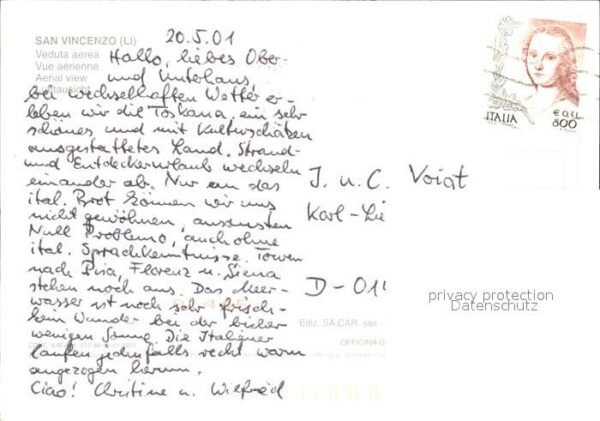 SAN VINCENZO (LI)
Veduta aerea
Vue aérienne
Aerial view
Luftansicht
20.5.01
Hallo, liebes Ober-
und Unterhaus,
bei wechselhaften Wetter er-
leben wir die Toskana, ein sehr
schönes und mit Kulturschätzen
ausgestattetes Land. Strand-
und Entdeckerurlaub wechseln
einander ab. Nur an das
ital. Brot können wir uns
nicht gewöhnen, ansonsten
Null Problemo, auch ohne
ital. Sprachkenntnisse. Touren
nach Pisa, Florenz u. Siena
stehen noch aus. Das Meer-
wasser ist noch sehr frisch-
kein Wunder bei der bisher
wenigen Sonne. Die Italiener
laufen jedenfalls recht warm
angezogen herum.
Ciao! Christine u. Wilfried
ITALIA
€ 0,41
800
J. u. C. Voigt
Karl-Lie
D-01
privacy protection
Datenschutz
Ediz. SA.CAR. sas -
OFFICINA G